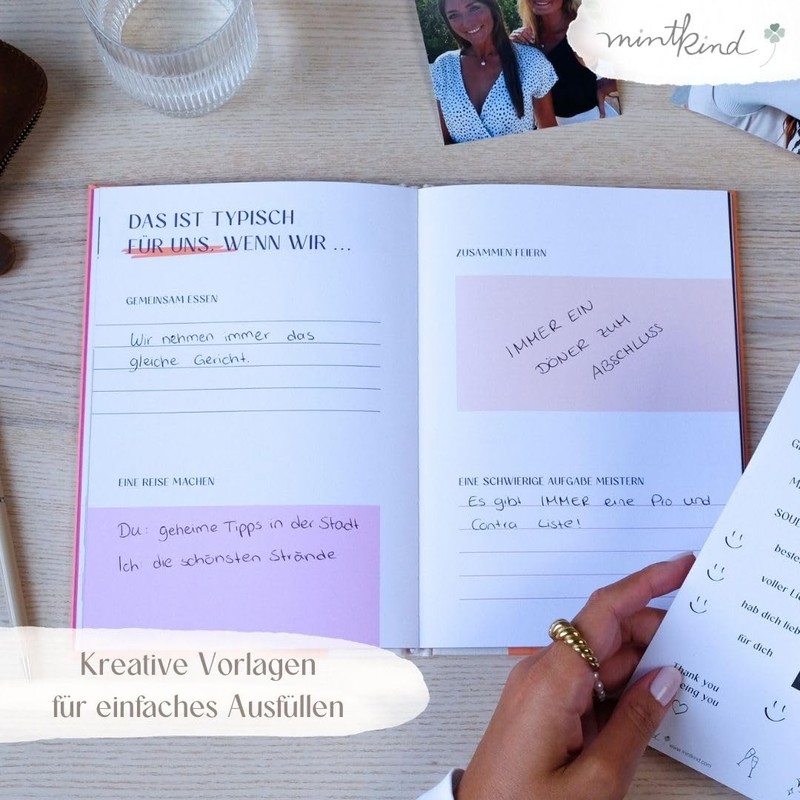 mintkind
DAS IST TYPISCH
FÜR UNS, WENN WIR ...
GEMEINSAM ESSEN
Wir nehmen immer das
gleiche Gericht.
EINE REISE MACHEN
Du: geheime Tipps in der Stadt
Ich: die schönsten Strände
ZUSAMMEN FEIERN
IMMER EIN
DÖNER ZUM
ABSCHLUSS
EINE SCHWIERIGE AUFGABE MEISTERN
Es gibt IMMER eine Pro und
Contra Liste!
beste
voller Li
hab dich lieb
für dich
Thank you
eing you
www.mintkind.com
Kreative Vorlagen
für einfaches Ausfüllen